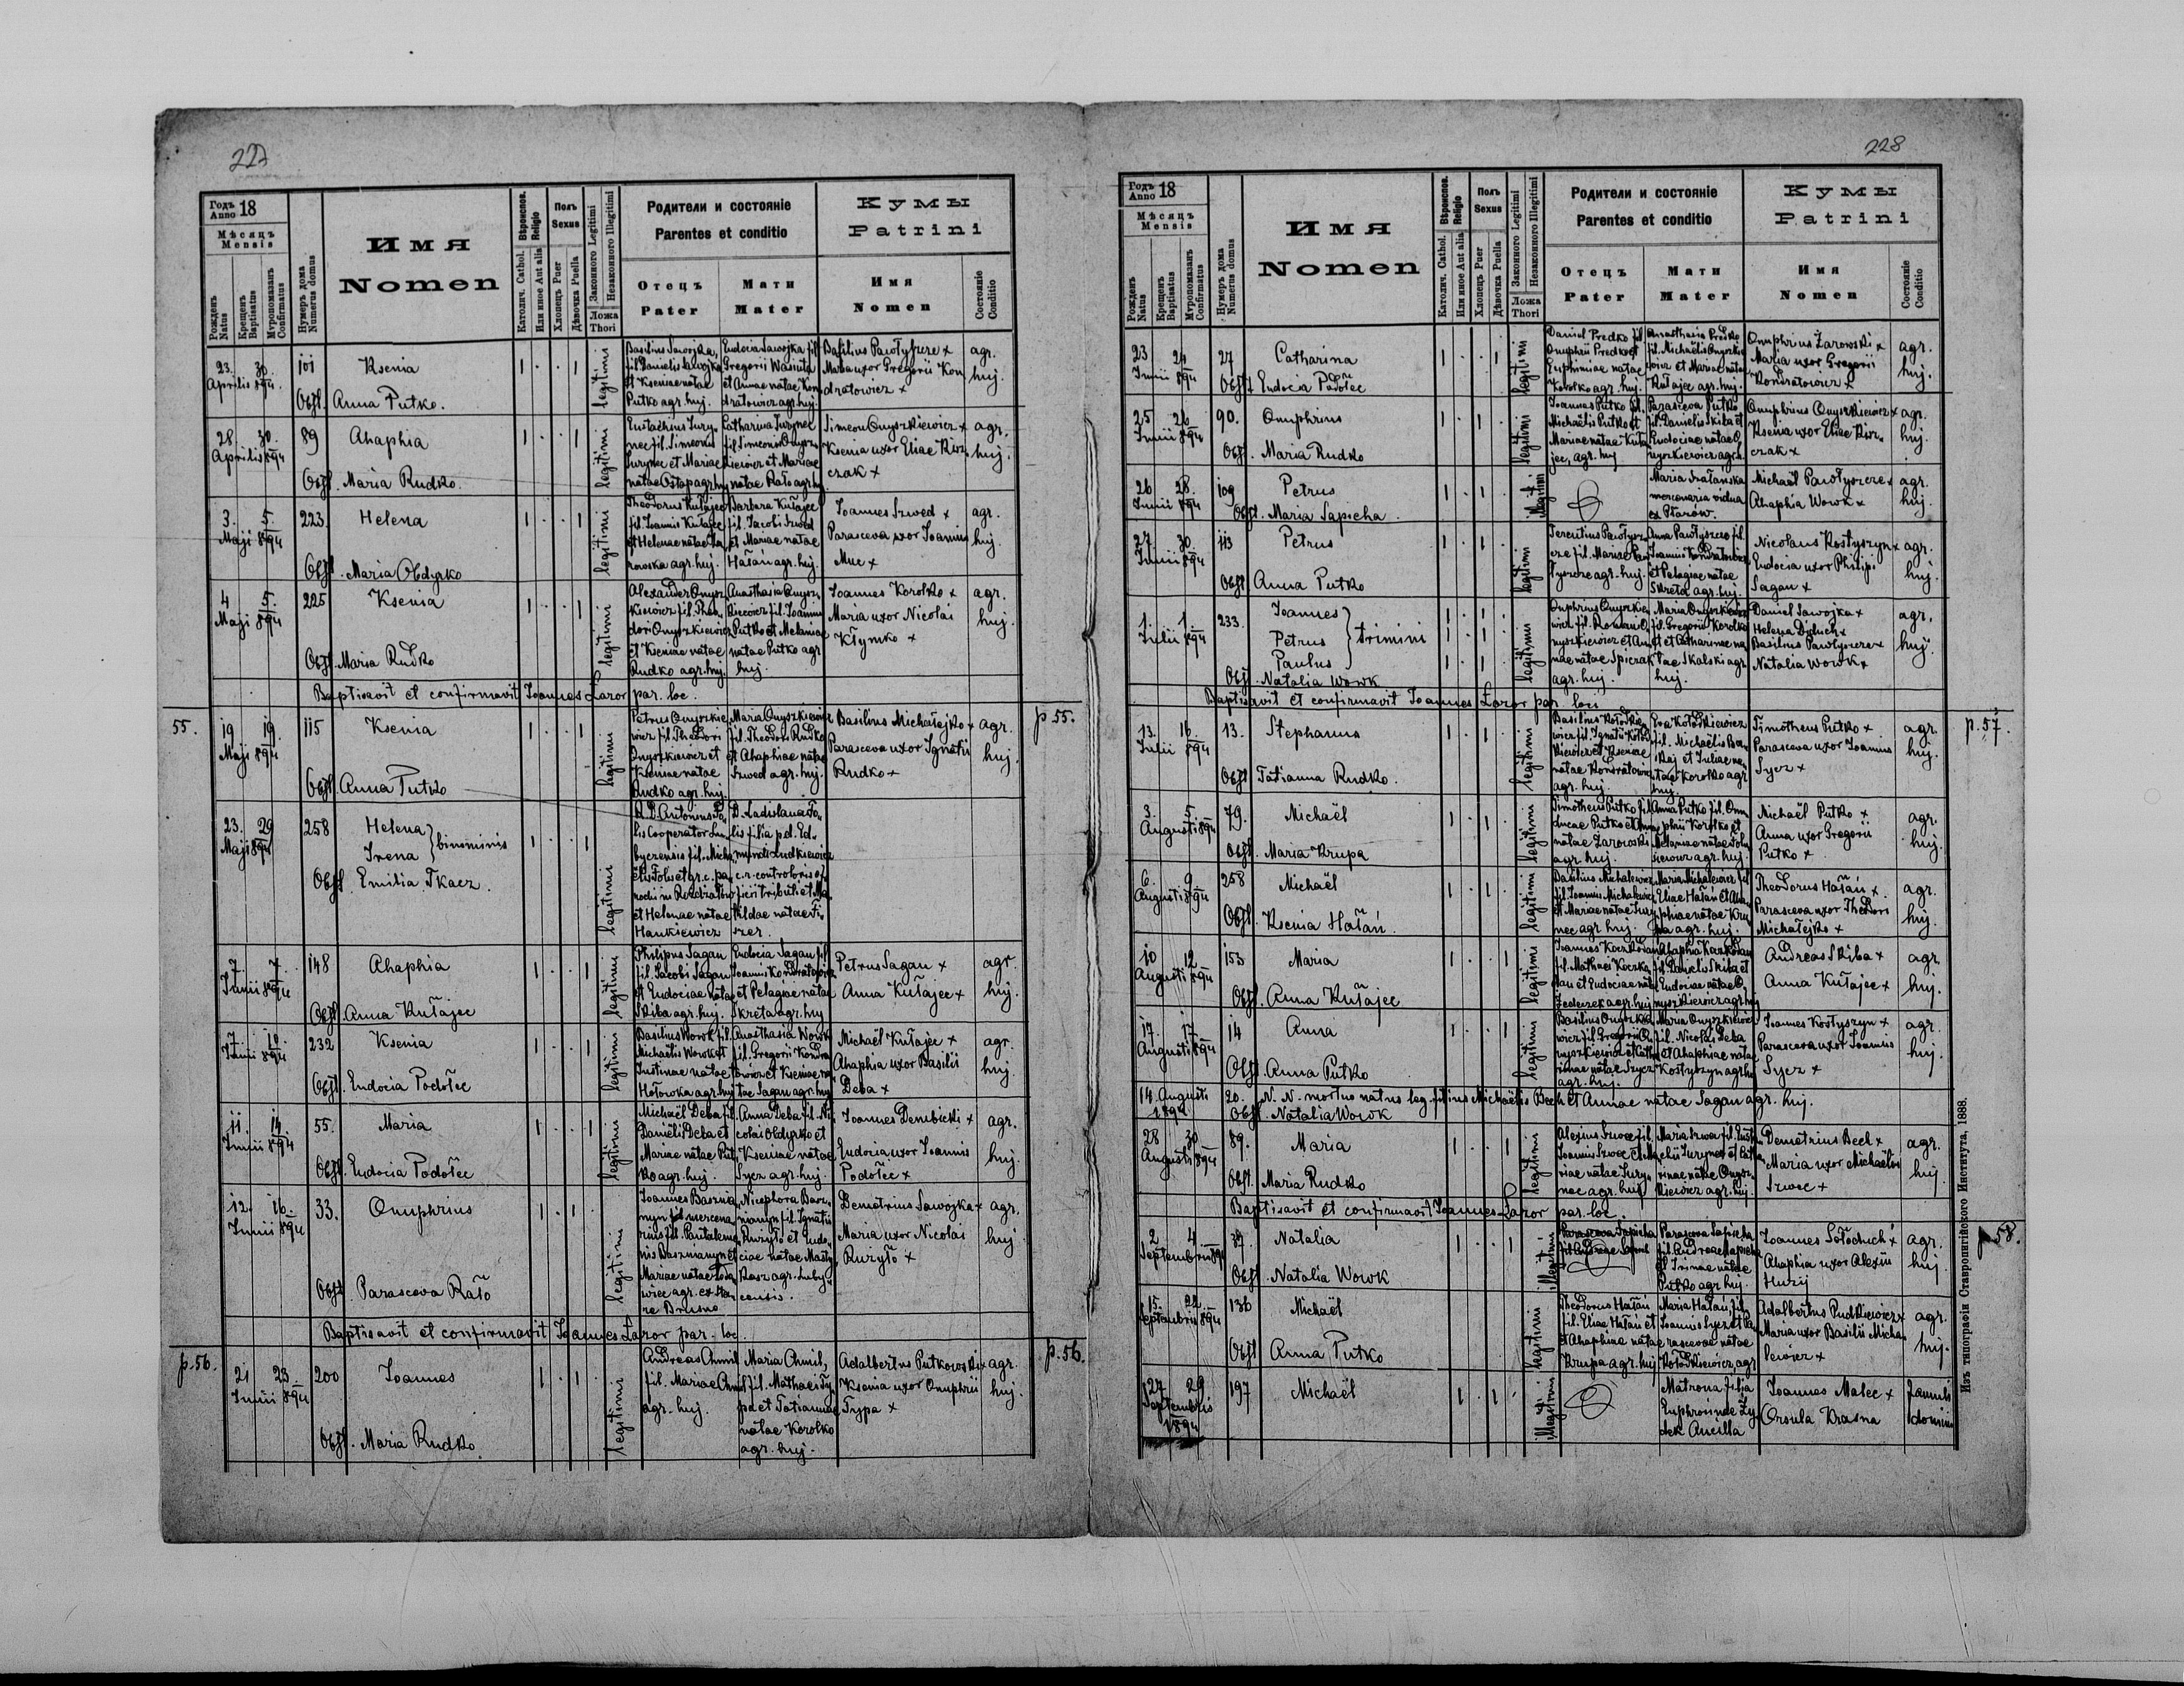 227
Годъ Anno 18
Мѣсяцъ
Mensis
Рожденъ Natus
Крещенъ Baptisatus
Мѵропомазанъ Confirmatus
Нумеръ дома Numerus domus
Имя
Nomen
Вѣроиспов. Religio
Католич. Cathol.
Или иное Aut alia
Полъ Sexus
Хлопецъ Puer
Дѣвочка Puella
Законного Legitimi
Незаконного Illegitimi
Ложа
Thori
Родители и состоянiе
Parentes et conditio
Отецъ Pater
Мати Mater
Кумы
Patrini
Имя Nomen
Состоянiе Conditio
23. 30. Aprilis 894. 101 Ksenia 1 . . 1 legitimi
Basilius Sawojka, fil. Danielis Sawojka et Kseniae natae Putko agr. huj.
Eudocia Sawojka fil. Gregorii Wasiuta et Annae natae Kondratowicz agr. huj.
Basilius Pawłyszcze x Maria uxor Gregorii Kondratowicz x
agr. huj.
Obst. Anna Putko.
28. 30. Aprilis 894 89 Ahaphia 1 . . 1 legitimi
Eustachius Jurynec fil. Simeonis Jurynec et Mariae natae Ostap agr. huj
Catharina Jurynec fil. Simeonis Onyszkiewicz et Mariae natae Rało agr. huj
Simeon Onyszkiewicz x Ksenia uxor Eliae Kiszczak x
agr. huj.
Obst. Maria Rudko.
3. 5. Maji 894 223. Helena 1 . . 1 legitimi
Theodorus Kułajec fil. Joannis Kułajec et Helenae natae Żarowska agr. huj.
Barbara Kułajec fil. Jacobi Szwed et Mariae natae Hałań agr. huj.
Joannes Szwed x Parasceva uxor Joannis Muc x
agr. huj.
Obst. Maria Obdyrko
4 5. Maji 894 225 Ksenia 1 . . 1 legitimi
Alexander Onyszkiewicz fil. Theodori Onyszkiewicz et Kseniae natae Rudko agr. huj.
Anasthasia Onyszkiewicz fil. Joannis Putko et Melaniae natae Putko agr huj.
Joannes Korotko x Maria uxor Nicolai Kłymko x
agr. huj.
Obst. Maria Rudko
Baptisavit et confirmavit Joannes Łazor par. loc.
55. 19 19. Maji 894 115 Ksenia 1 . . 1 legitimi
Petrus Onyszkiewicz fil. Theodori Onyszkiewicz et Kseniae natae Rudko agr. huj.
Maria Onyszkiewicz fil. Theodori Rudko et Ahaphiae natae Szwed agr. huj.
Basilius Michałejko x Parasceva uxor Ignatii Rudko x
agr. huj. p 55.
Obst. Anna Putko
23. 29 Maji 894 258 Helena Irena } binininis 1 . . 1 legitimi
R. D. Antonius Folis Cooperator et Helenae natae Hankiewicz
D. Ladislava Folis filia p.d. Edmundi Ludkiewicz c. r. controloris officii tributi et Matildae natae
Obst. Emilia Tkacz.
7. 7. Junii 894 148 Ahaphia 1 . . 1 legitimi
Philipus Sagan fil. Jacobi Sagan et Eudociae natae Skiba agr. huj.
Eudocia Sagan fil. Joannis Kondratowicz et Pelagiae natae Skreta agr. huj
Petrus Sagan x Anna Kułajec x
agr. huj.
Obst. Anna Kułajec
7. 10. Junii 894 232 Ksenia 1 . . 1 legitimi
Basilius Wowk fil. Michaëlis Wowk et Justinae natae Hołowka agr. huj
Anasthasia Wowk fil. Gregorii Kondratowicz et Kseniae natae Sagan agr. huj
Michaël Kułajec x Ahaphia uxor Basilii Deba x
agr. huj.
Obst. Eudocia Podołec
11. 14. Junii 894 55. Maria 1 . . 1 legitimi
Michaël Deba fil. Daniëlis Deba et Mariae natae Putko agr. huj.
Anna Deba fil. Nicolai Obdyrko et Kseniae natae Sycz agr. huj.
Joannes Dembicki x Eudocia uxor Joannis Podołec x
agr. huj.
Obst. Eudocia Podołec
12. 16. Junii 894 33. Onuphrius 1 . 1 . legitimi
Joannes Baszmanyn fil. mercenarius fil. Pantalemonis Baszmanyn et Mariae natae
Nicephora Baszmanyn fil. Ignatii Ruzyło et Eudociae natae
Demetrius Sawojka x Maria uxor Nicolai Ruzyło x
agr. huj.
Obst. Parasceva Rało
Baptisavit et confirmavit Joannes Łazor par. loc
p. 56. 21 23. Junii 894 200 Joannes 1 . 1 . legitimi
Andreas Chmil fil. Mariae Chmil agr. huj.
Maria Chmil, fil. Mathaei Typa et Tatiannae natae Korotko agr. huj.
Adalbertus Putkowski x Ksenia uxor Onuphrii Typa x
agr. huj. p. 56.
Obst. Maria Rudko
228
Годъ Anno 18
Мѣсяцъ
Mensis
Рожденъ Natus
Крещенъ Baptisatus
Мѵропомазанъ Confirmatus
Нумеръ дома Numerus domus
Имя
Nomen
Вѣроиспов. Religio
Католич. Cathol.
Или иное Aut alia
Полъ Sexus
Хлопецъ Puer
Дѣвочка Puella
Законного Legitimi
Незаконного Illegitimi
Ложа
Thori
Родители и состоянiе
Parentes et conditio
Отецъ Pater
Мати Mater
Кумы
Patrini
Имя Nomen
Состоянiе Conditio
23 24 Junii 894 27 Catharina 1 . . 1 legitimi
Daniel Predko fil Onuphrii Predko et Euphemiae natae Korotko agr. huj.
Anasthasia Predko fil. Michaëlis Onyszkiewicz et Mariae natae Kułajec agr. huj.
Onuphrius Żarowski x Maria uxor Gregorii Kondratowicz x
agr. huj.
Obst. Eudocia Podołec
25 26 Junii 894 90. Onuphrius 1 . 1 . legitimi
Joannes Putko fil. Michaëlis Putko et Mariae natae Kułajec, agr. huj
Parasceva Putko fil. Danielis Skiba et Eudociae natae Onyszkiewicz agr. h.
Onuphrius Onyszkiewicz x Ksenia uxor Eliae Kiszczak x
agr. huj.
Obst. Maria Rudko
26 28. Junii 894 109 Petrus 1 . 1 . illegitimi
Maria Szałanska mercenaria vidua ex Płazów.
Michaël Pawłyszcze x Ahaphia Wowk x
agr. huj.
Obst. Maria Sapieha
27 30. Junii 894 113 Petrus 1 . 1 . legitimi
Terentius Pawłyszcze fil. Mariae Pawłyszcze agr. huj.
Anna Pawłyszcze fil. Joannis Kondratowicz et Pelagiae natae Skreta agr. huj.
Nicolaus Kostyszyn x Eudocia uxor Philipi Sagan x
agr. huj.
Obst Anna Putko
1. 1. Julii 894 233. Joannes Petrus Paulus } trimini 1 . 1 . legitimi
Onuphrius Onyszkiewicz fil. Romani Onyszkiewicz et Annae natae Spiczak agr. huj.
Maria Onyszkiewicz fil. Gregorii Korotko et Catharinae natae Skalski agr. huj.
Daniel Sawojka x Helena Dyduch x Basilius Pawłyszcze x Natalia Wowk x
agr. huj.
Obst. Natalia Wowk
Baptisavit et confirmavit Joannes Łazor par loci
13. 16. Julii 894 13. Stephanus 1 . 1 . legitimi
Basilius Kołodkiewicz fil. Ignatii Kołodkiewicz et Kseniae natae Kondratowicz agr. huj.
Eva Kołodkiewicz fil. Michaëlis et Juliae natae Korotko agr huj.
Timotheus Putko x Parasceva uxor Joannis Sycz x
agr. huj. p. 57.
Obst Tatianna Rudko.
3. 5. Augusti 894 79. Michaël 1 . 1 . legitimi
Timotheus Putko fil Lucae Putko et Annae natae Żarowski agr. huj.
Anna Putko fil. Onuphrii Korotko et Melaniae natae agr. huj.
Michaël Putko x Anna uxor Gregorii Putko x
agr. huj.
Obst. Maria Krupa
6. 9. Augusti 894 258 Michaël 1 . 1 . legitimi
Basilius Michalewicz fil. Joannis Michalewicz et Mariae natae Jurynec agr. huj.
Maria Michalewicz fil Eliae Hałań et Ahaphiae natae Krupa agr. huj.
Theodorus Hałań x Parasceva uxor Theodori Michałejko x
agr. huj.
Obst. Ksenia Hałań
10 12 Augusti 894 153 Maria 1 . . 1 legitimi
Joannes Koczkodan fil. Mathaei Koczkodan et Eudociae natae agr. huj
Ahaphia Koczkodan fil. Danielis Skiba et Eudociae natae Onyszkiewicz agr. huj
Andreas Skiba x Anna Kułajec x
agr. huj.
Obst. Anna Kułajec
17. 17 Augusti 894 14 Anna 1 . . 1 legitimi
Basilius Onyszkiewicz fil. Gregorii Onyszkiewicz et Catharinae natae Szycz agr. huj.
Maria Onyszkiewicz fil. Nicolai Deba et Ahaphiae natae Kostyszyn agr. huj
Joannes Kostyszyn x Parasceva uxor Joannis Sycz x
agr. huj.
Obst. Anna Putko
14. Augusti 1894 20. N. N. mortuo natus leg. filius Michaëlis Bech et Annae natae Sagan agr. huj.
Obst. Natalia Wowk
28 30. Augusti 894 89. Maria 1 . . 1 legitimi
Alexius Szwec fil. Joannis Szwec et Mariae natae Jurynec agr. huj
Maria Szwec fil. Eustachii Jurynec et Catharinae natae Onyszkiewicz agr. huj.
Demetrius Bech x Maria uxor Michaëlis Szwec x
agr. huj.
Obst. Maria Rudko
Baptisavit et confirmavit Joannes Łazor par. loc.
2 4. Septembris 894 37. Natalia 1 . . 1 illegitimi
Parasceva Sapieha fil. Andreae Sapieha et Irinae natae Putko agr. huj.
Joannes Sołoduch x Ahaphia uxor Alexii Huzij
agr. huj. p 58.
Obst. Natalia Wowk
15. 22. Septembris 894 136 Michaël legitimi
Theodorus Hałań fil. Eliae Hałań et Ahaphiae natae Krupa agr. huj
Maria Hałań, fil. Joannis Sycz et Parascevae natae Kołodkiewicz, agr
Adalbertus Rudkiewicz x Maria uxor Basilii Michalewicz x
agr. huj.
Obst Anna Putko
27 29 Septembris 1894 197 Michaël 1 . 1 . illegitimi
Matrona filia Euphrosinae Ancilla
Joannes Malec x Orsula Krasna
famuli domini
Изъ типографiи Ставропигiйского Института, 1888.